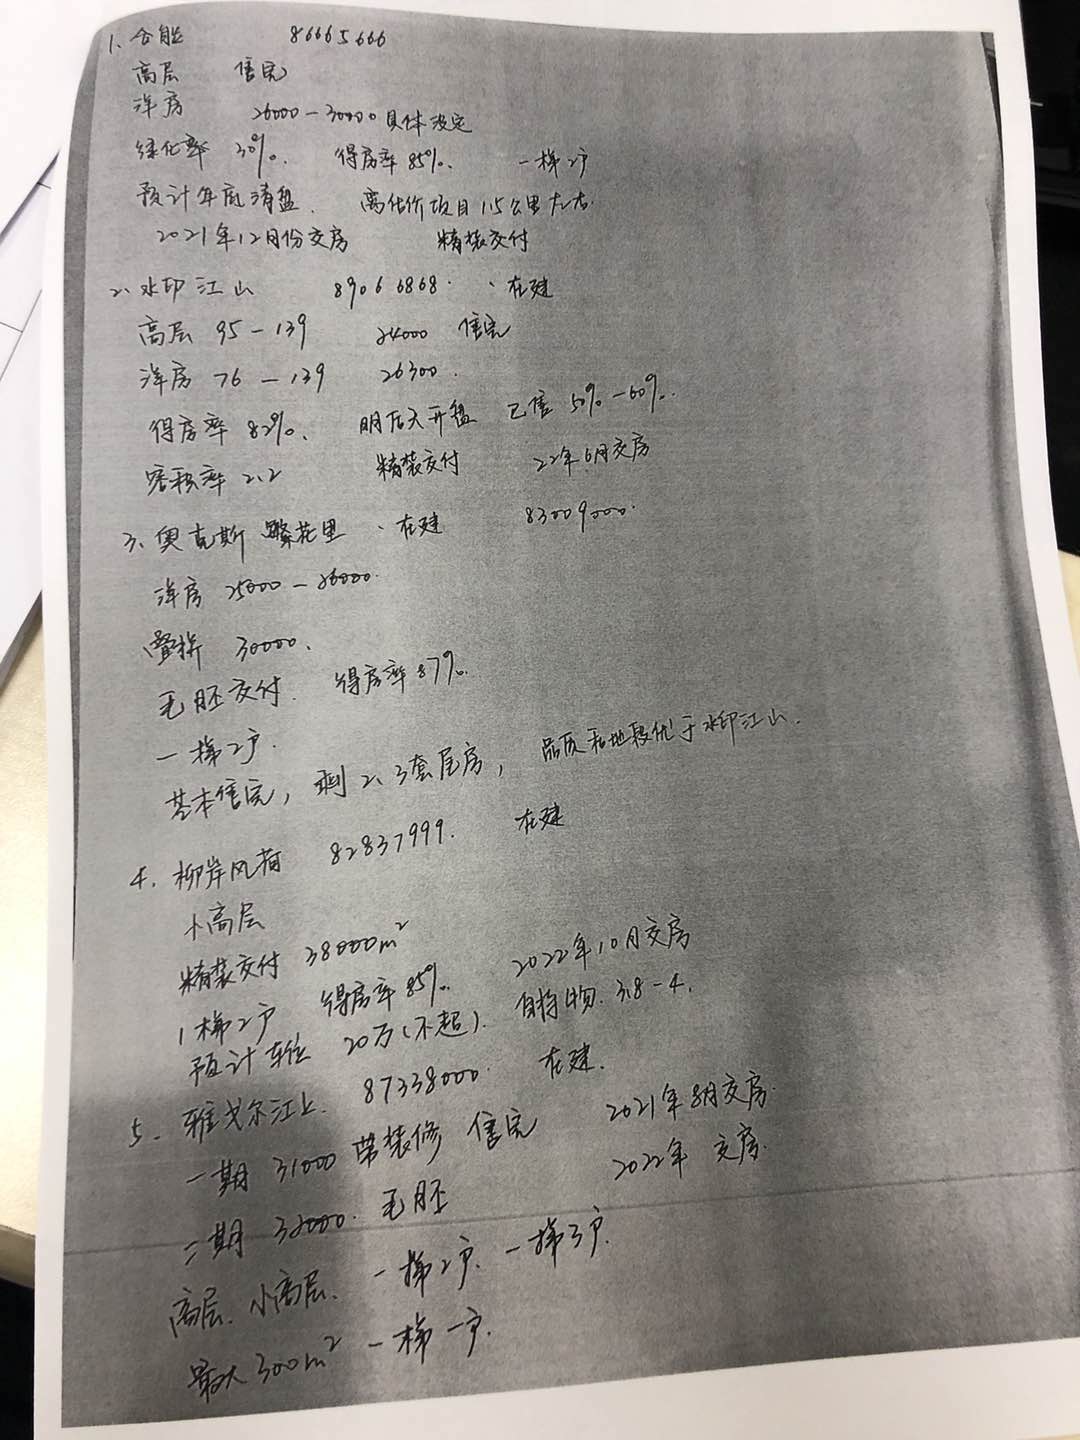 1、合能 86665666
高层 售完
洋房 26000-30000 具体没定
绿化率 30%. 得房率 85%. 一梯2户
预计年底清盘. 离估价项目1.5公里左右.
2021年12月份交房 精装交付
2、水印江山 89066868. 、在建
高层 95-139 24000 售完
洋房 76-139 26300.
得房率 82%、 明后天开盘 已售 50%-60%.
容积率 2.2 精装交付 22年6月交房
3、奥克斯 繁花里 、在建 83009000.
洋房 25000-26000.
叠拼 30000、
毛胚交付. 得房率 87%.
一梯2户.
基本售完，剩2、3套尾房， 品质和地段优于水印江山.
4. 柳岸风荷 82837999. 在建
小高层
精装交付 38000m²
1梯2户 得房率 85%. 2022年10月交房
预计车位 20万(不超). 自持物. 3.8-4.
5. 雅戈尔江上. 87338000. 在建.
一期 31000 带装修 售完 2021年8月交房.
二期 32000. 毛胚 2022年 交房.
高层. 小高层. 一梯2户. 一梯3户.
最大300m² 一梯一户.